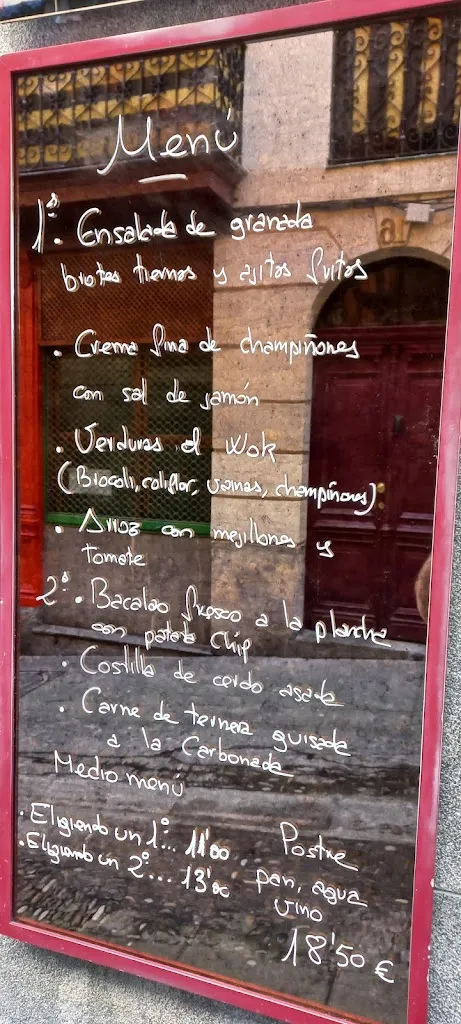 Menú
1ºs. Ensalada de granada
brotes tiernos y ajitos fritos
. Crema fina de champiñones
con sal de jamón
. Verduras al Wok
(Brócoli, coliflor, vainas, champiñones)
. Arroz con mejillones y
tomate
2ºs. Bacalao fresco a la plancha
con patata chip
. Costilla de cerdo asada
. Carne de ternera guisada
a la Carbonada
Medio menú
. Eligiendo un 1º... 11'00
. Eligiendo un 2º... 13'00
Postre
pan, agua
vino
18'50 €